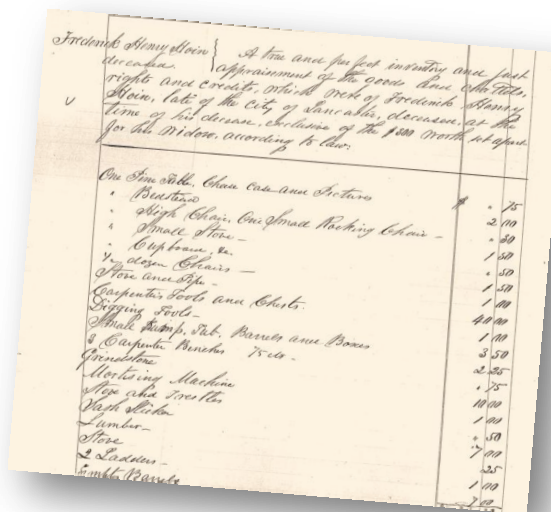 Frederick Henry Stein } A true and perfect inventory and just
deceased. appraisment of the goods and chattels,
rights and credits, which were of Frederick Henry
Stein, late of the city of Lancaster, deceased, at the
time of his decease, exclusive of the $300 worth set apart
for his widow, according to law:
One Pine Table, Case and Pictures $ " 75
" Bedstead 2 00
" High Chair, One Small Rocking Chair - " 50
" Small Stove - 1 50
" Cupboard &c. " 50
½ dozen Chairs - 1 50
Stove and Pipe - 1 00
Carpenter's Tools and Chests. 40 00
Digging Tools - 1 00
Small Lamp, Tub, Barrels and Boxes 3 50
3 Carpenter Benches 75 cts - 2 25
Grindstone " 75
Mortising Machine 10 00
Stove and Trestles 1 00
Sash Sticker " 50
Lumber - 7 00
Stove " 25
2 Ladders - 1 00
Empty Barrels